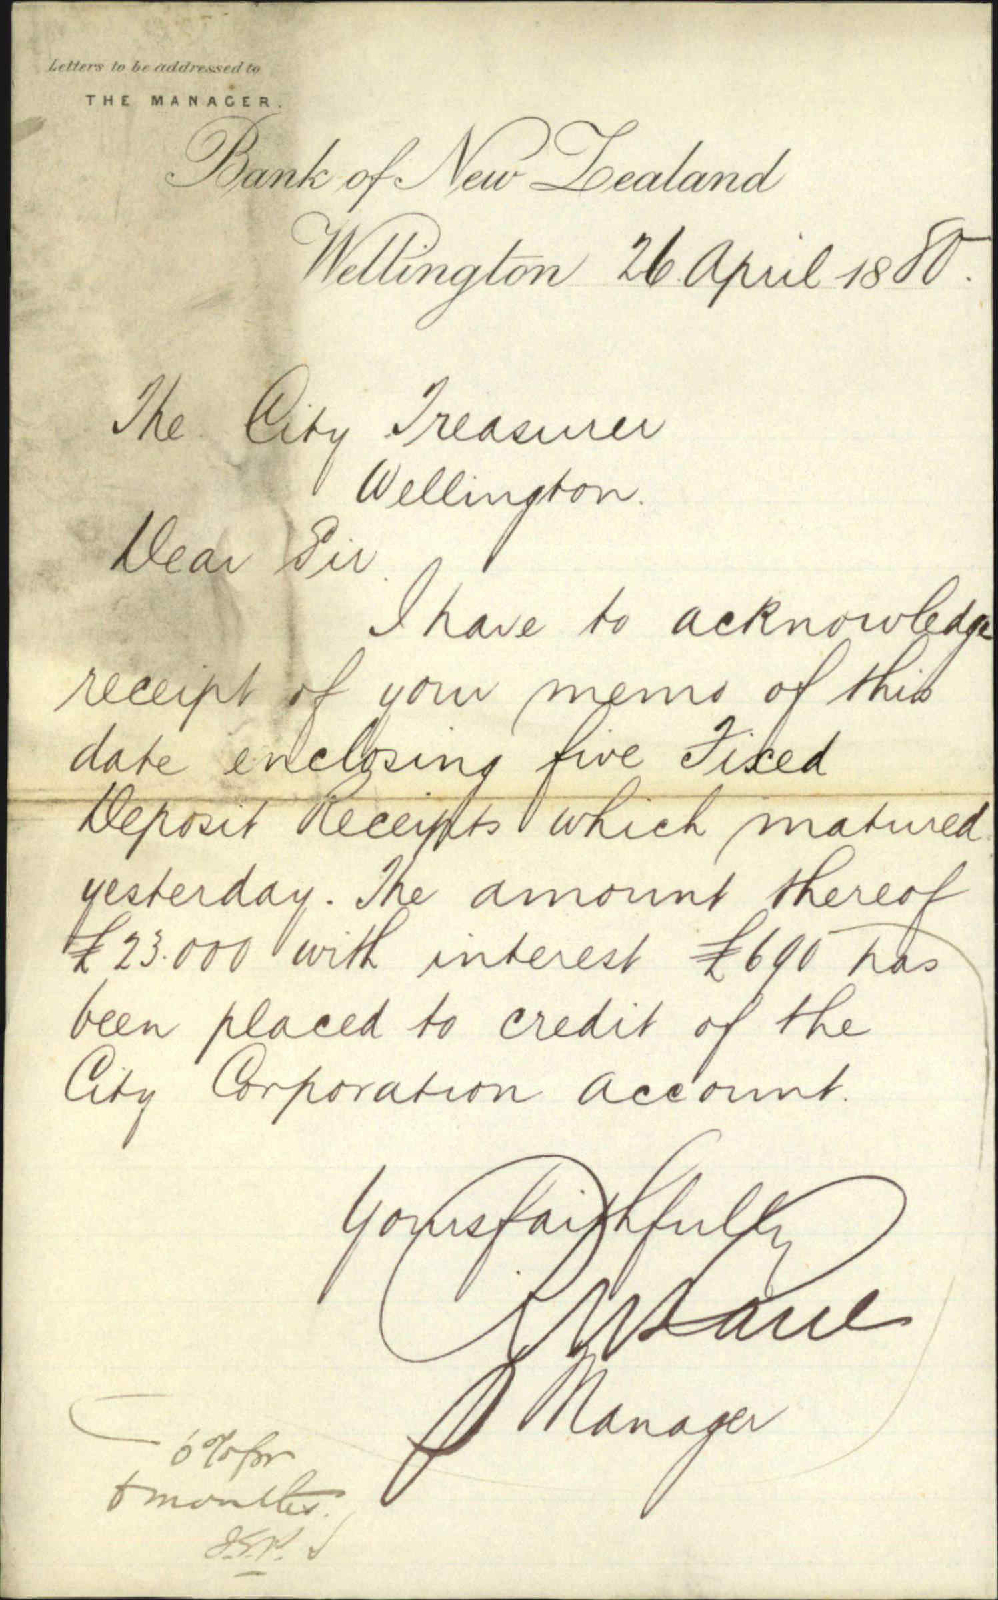 Letters to be addressed to
THE MANAGER.
Bank of New Zealand
Wellington 26 April 1880.
The City Treasurer
Wellington.
Dear Sir
I have to acknowledge
receipt of your memo of this
date enclosing five Fixed
Deposit Receipts which matured
yesterday. The amount thereof
£23.000 with interest £690 has
been placed to credit of the
City Corporation account.
Yours faithfully
Manager
6% for
6 months.